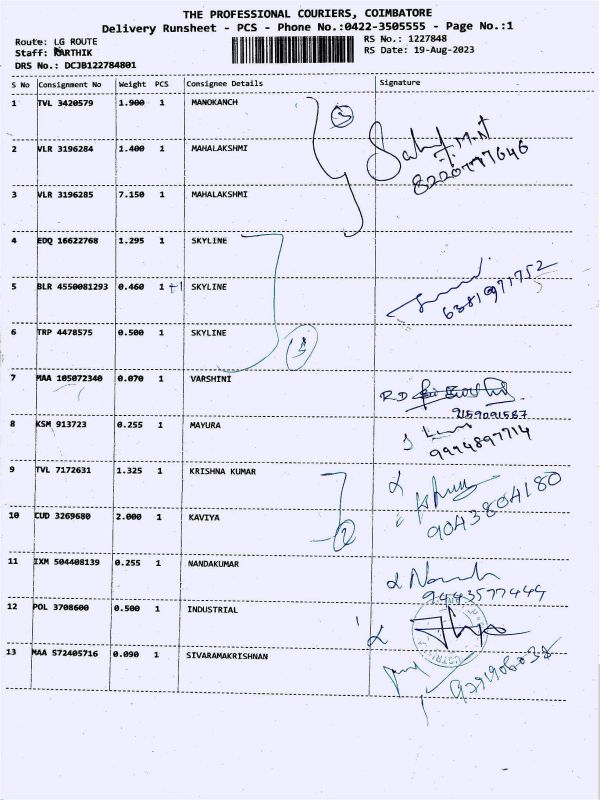 THE PROFESSIONAL COURIERS, COIMBATORE
Delivery Runsheet - PCS - Phone No.:0422-3505555 - Page No.:1
Route: LG ROUTE
RS No.: 1227848
Staff: KARTHIK
RS Date: 19-Aug-2023
DRS No.: DCJB122784801
S No Consignment No Weight PCS Consignee Details Signature
1 TVL 3420579 1.900 1 MANOKANCH
2 VLR 3196284 1.400 1 MAHALAKSHMI
8220777646
3 VLR 3196285 7.150 1 MAHALAKSHMI
4 EDQ 16622768 1.295 1 SKYLINE
5 BLR 4550081293 0.460 1 +1 SKYLINE
6381971752
6 TRP 4478575 0.500 1 SKYLINE
7 MAA 105072340 0.070 1 VARSHINI
R.D
8 KSM 913723 0.255 1 MAYURA
9994897714
9 TVL 7172631 1.325 1 KRISHNA KUMAR
10 CUD 3269680 2.000 1 KAVIYA
2
9043804180
11 IXM 504408139 0.255 1 NANDAKUMAR
9443577449
12 POL 3708600 0.500 1 INDUSTRIAL
13 MAA 572405716 0.090 1 SIVARAMAKRISHNAN